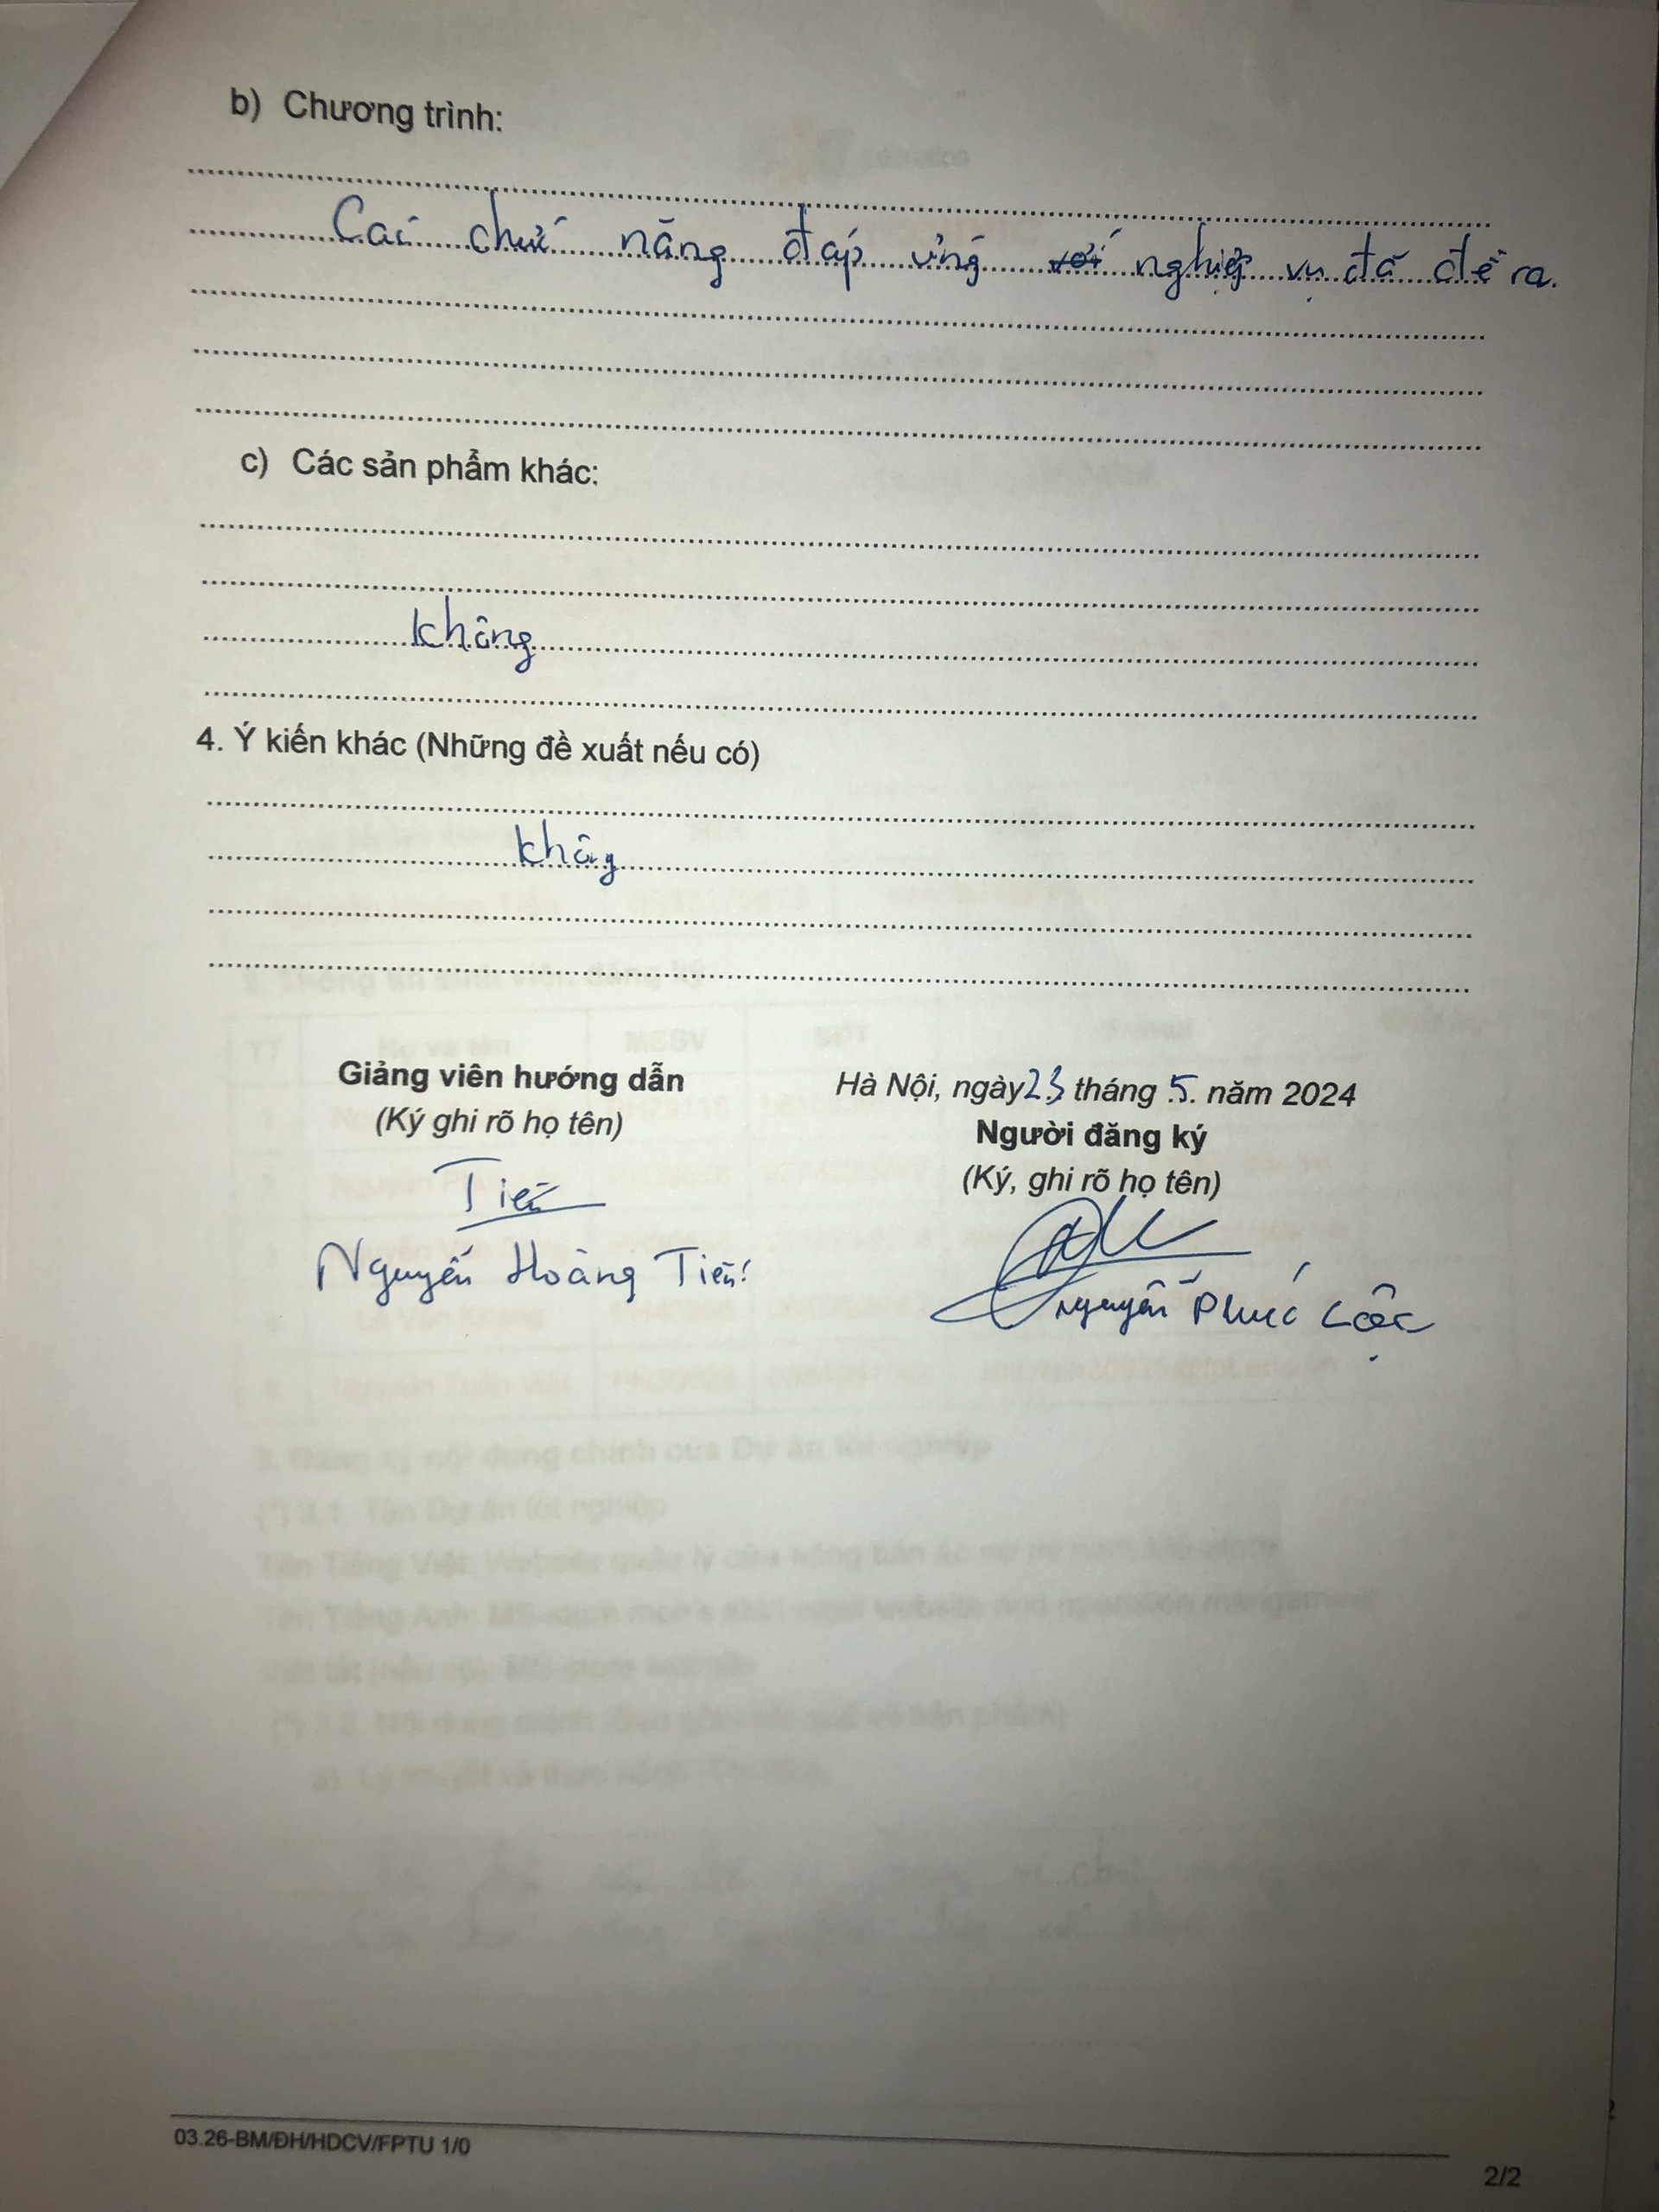 b) Chương trình:
Các chức năng đáp ứng với nghiệp vụ đã đề ra.
c) Các sản phẩm khác:
không
4. Ý kiến khác (Những đề xuất nếu có)
không
Giảng viên hướng dẫn
(Ký ghi rõ họ tên)
Tiến
Nguyễn Hoàng Tiến
Hà Nội, ngày 23 tháng 5. năm 2024
Người đăng ký
(Ký, ghi rõ họ tên)
Nguyễn Phúc Lộc
03.26-BM/ĐH/HDCV/FPTU 1/0
2/2